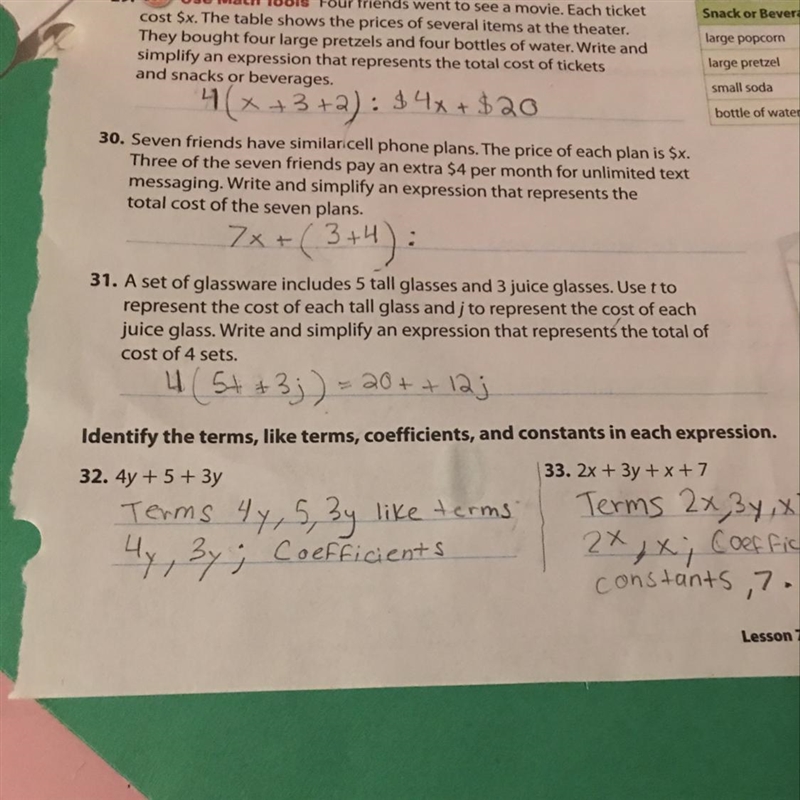 Use Math Tools Four friends went to see a movie. Each ticket
cost $x. The table shows the prices of several items at the theater.
They bought four large pretzels and four bottles of water. Write and
simplify an expression that represents the total cost of tickets
and snacks or beverages.
4(x+3+2): $4x+$20
Snack or Bevera
large popcorn
large pretzel
small soda
bottle of water
30. Seven friends have similar cell phone plans. The price of each plan is $x.
Three of the seven friends pay an extra $4 per month for unlimited text
messaging. Write and simplify an expression that represents the
total cost of the seven plans.
7x+(3+4):
31. A set of glassware includes 5 tall glasses and 3 juice glasses. Use t to
represent the cost of each tall glass and j to represent the cost of each
juice glass. Write and simplify an expression that represents the total of
cost of 4 sets.
4(5t+3j)=20t+12j
Identify the terms, like terms, coefficients, and constants in each expression.
32. 4y + 5 + 3y
Terms 4y, 5, 3y like terms
4y, 3y; Coefficients
33. 2x + 3y + x + 7
Terms 2x, 3y, x
2x, x; Coeffic
constants, 7.
Lesson 7